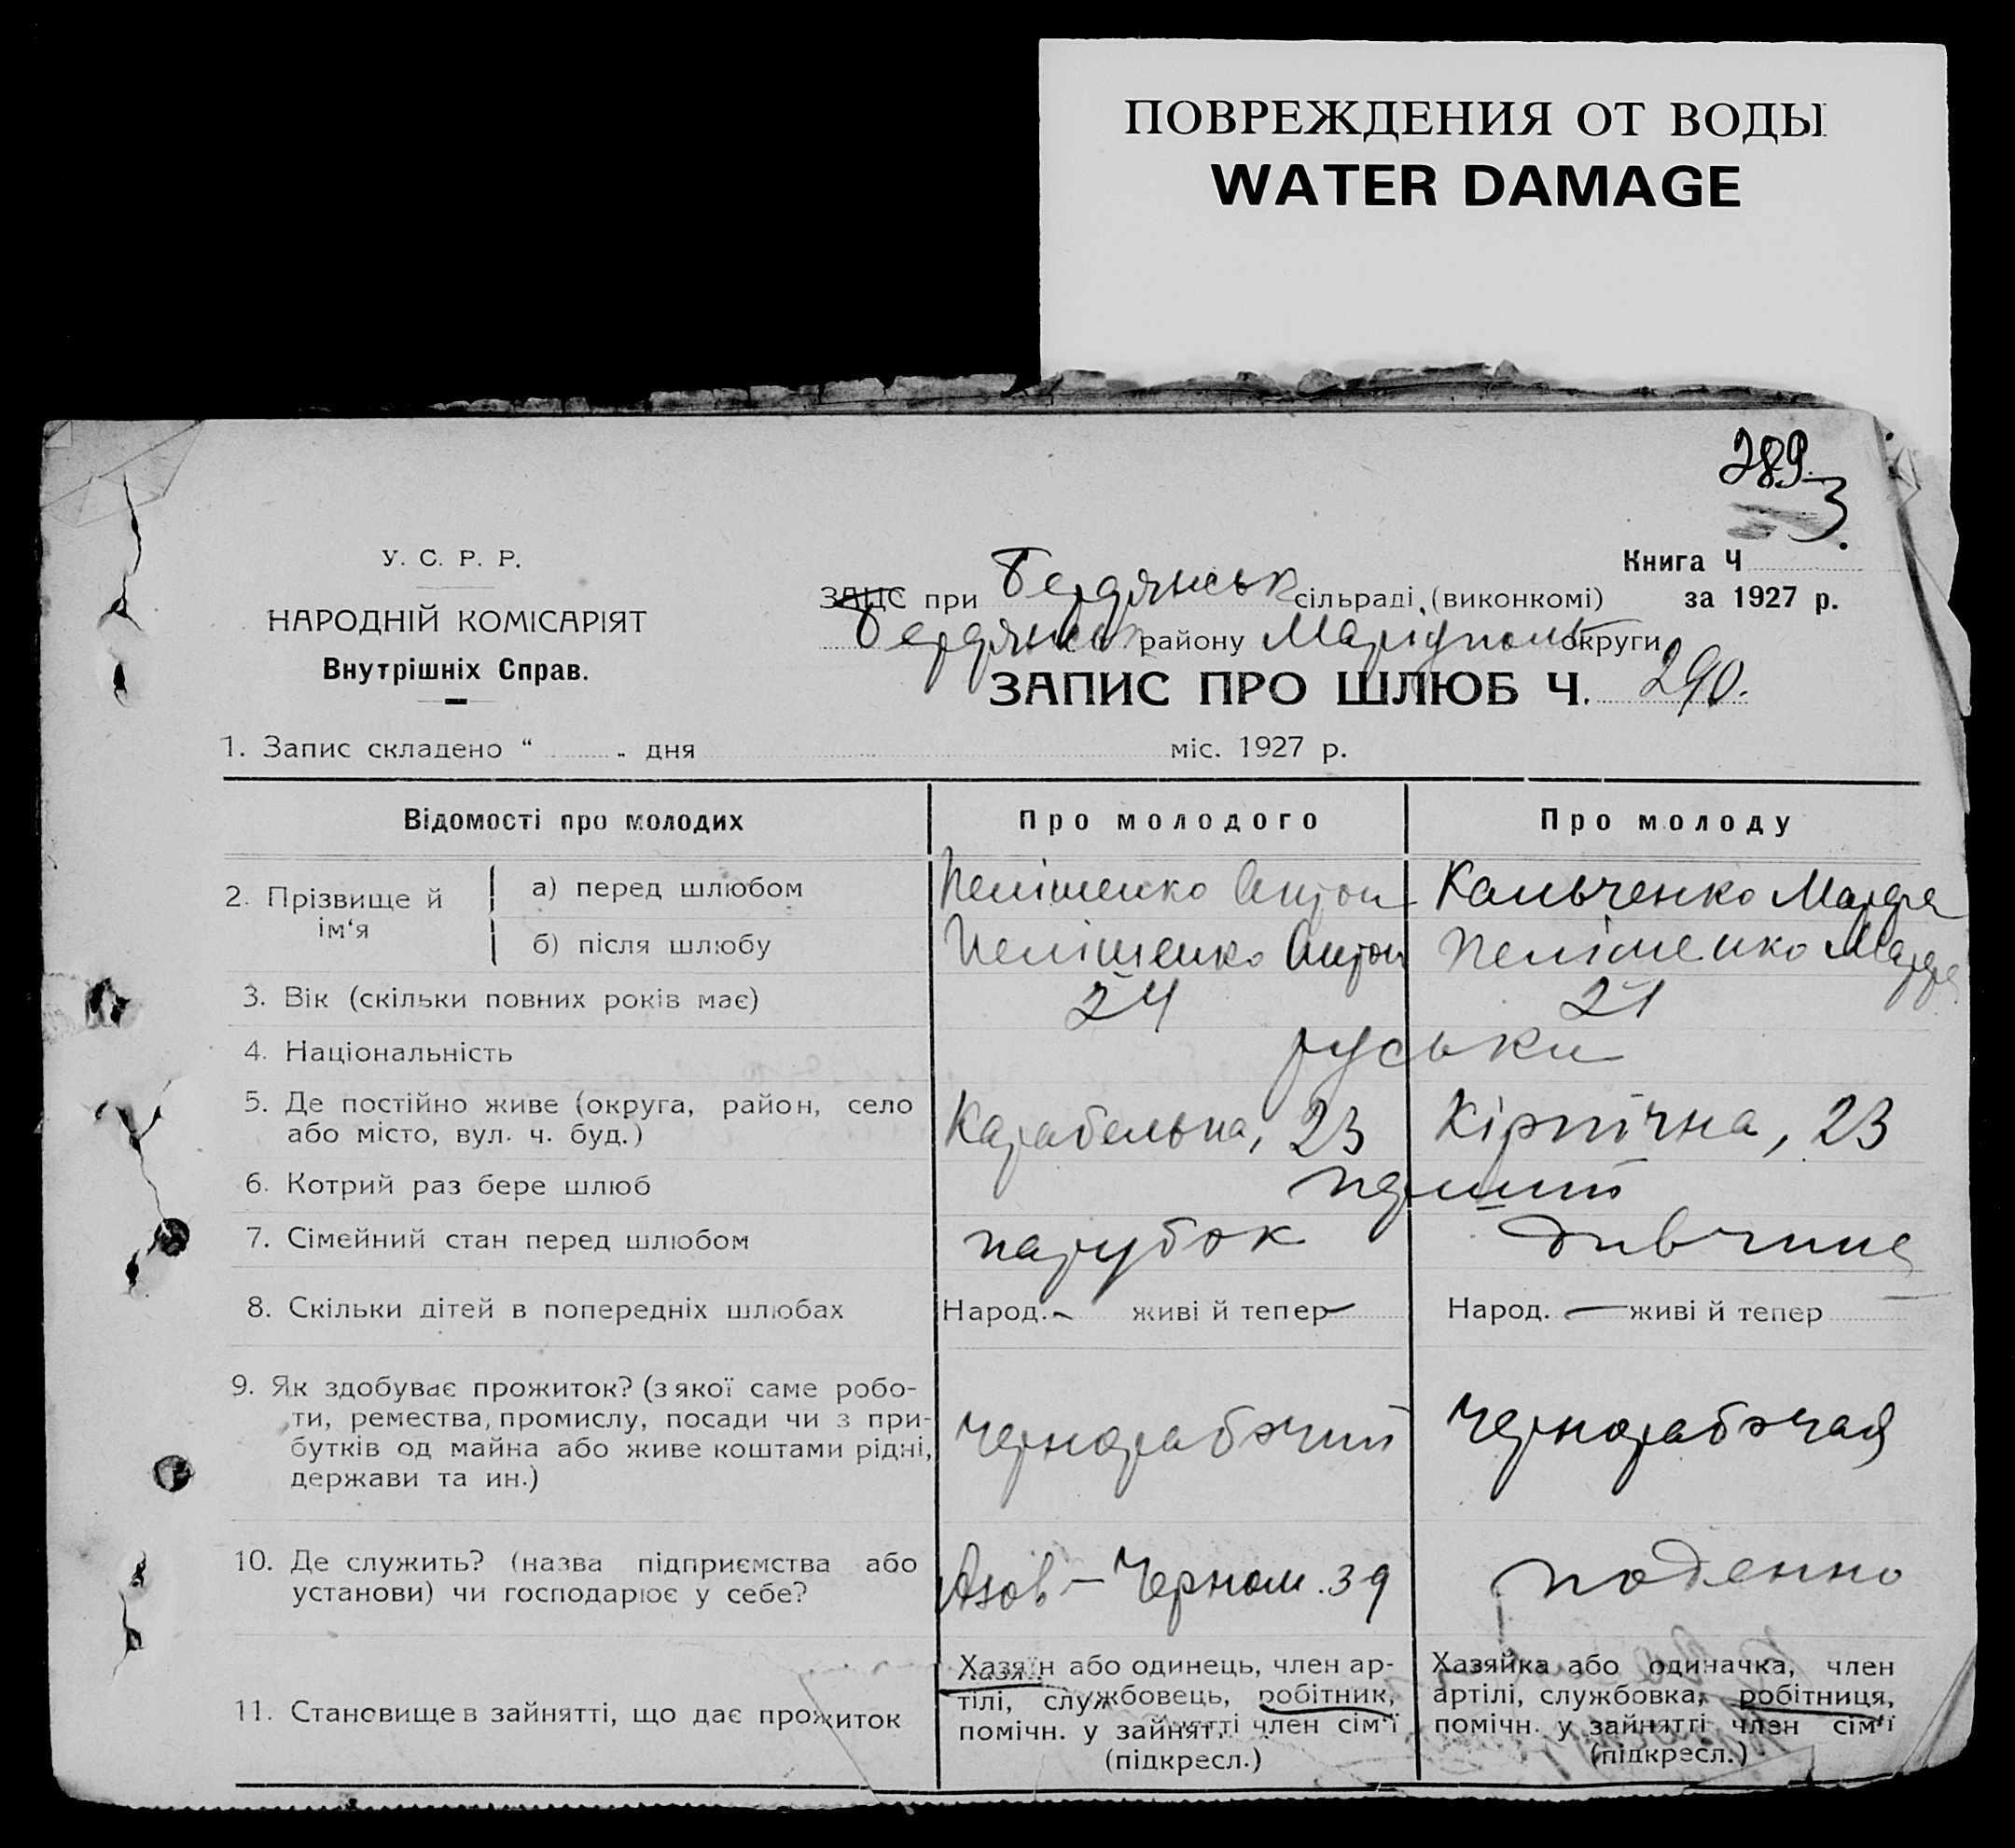 ПОВРЕЖДЕНИЯ ОТ ВОДЫ
WATER DAMAGE
289
3.
У. С. Р. Р.
НАРОДНІЙ КОМІСАРІЯТ
Внутрішніх Справ.
Книга Ч
за 1927 р.
ЗАЦС при Бердянськ сільраді, (виконкомі)
Бердянськ району Маріупольс округи
ЗАПИС ПРО ШЛЮБ Ч. 290.
1. Запис складено “ „ дня міс. 1927 р.
Відомості про молодих Про молодого Про молоду
2. Прізвище й ім‘я
а) перед шлюбом Пелішенко Антон Кальченко Марфа
б) після шлюбу Пелішенко Антон Пелішенко Марфа
3. Вік (скільки повних років має) 24 21
4. Національність руськи
5. Де постійно живе (округа, район, село
або місто, вул. ч. буд.) Карабельна, 23 Кірпічна, 23
6. Котрий раз бере шлюб перший
7. Сімейний стан перед шлюбом парубок дивчина
8. Скільки дітей в попередніх шлюбах Народ. — живі й тепер — Народ. — живі й тепер
9. Як здобуває прожиток? (з якої саме робо-
ти, ремества, промислу, посади чи з при-
бутків од майна або живе коштами рідні,
держави та ин.)
чернорабочий чернорабочая
10. Де служить? (назва підприємства або
установи) чи господарює у себе?
Азов – Черном. 39 поденно
11. Становище в зайнятті, що дає прожиток
Хазяїн або одинець, член ар-
тілі, службовець, робітник,
помічн. у зайнятті член сім‘ї
(підкресл.)
Хазяйка або одиначка, член
артілі, службовка, робітниця,
помічн. у зайнятті член сім‘ї
(підкресл.)